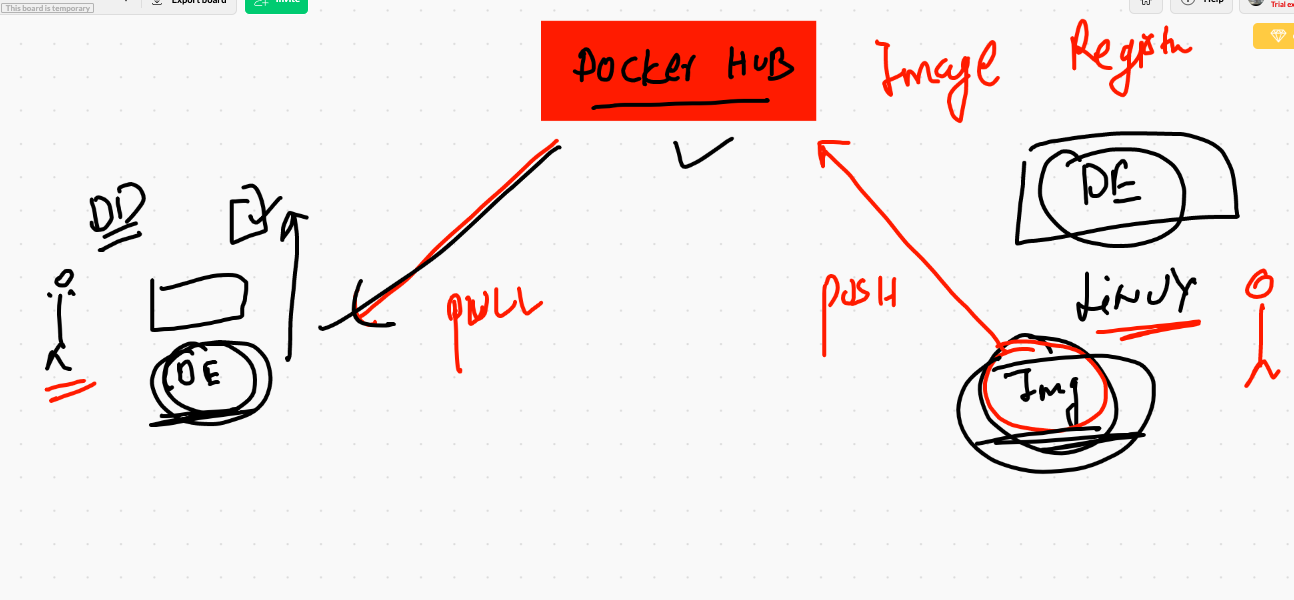 This board is temporary
Export board
Invite
Help
Trial ex
Docker HUB
Image
Registr
DD
DE
PULL
PUSH
DE
LiNUX
Img